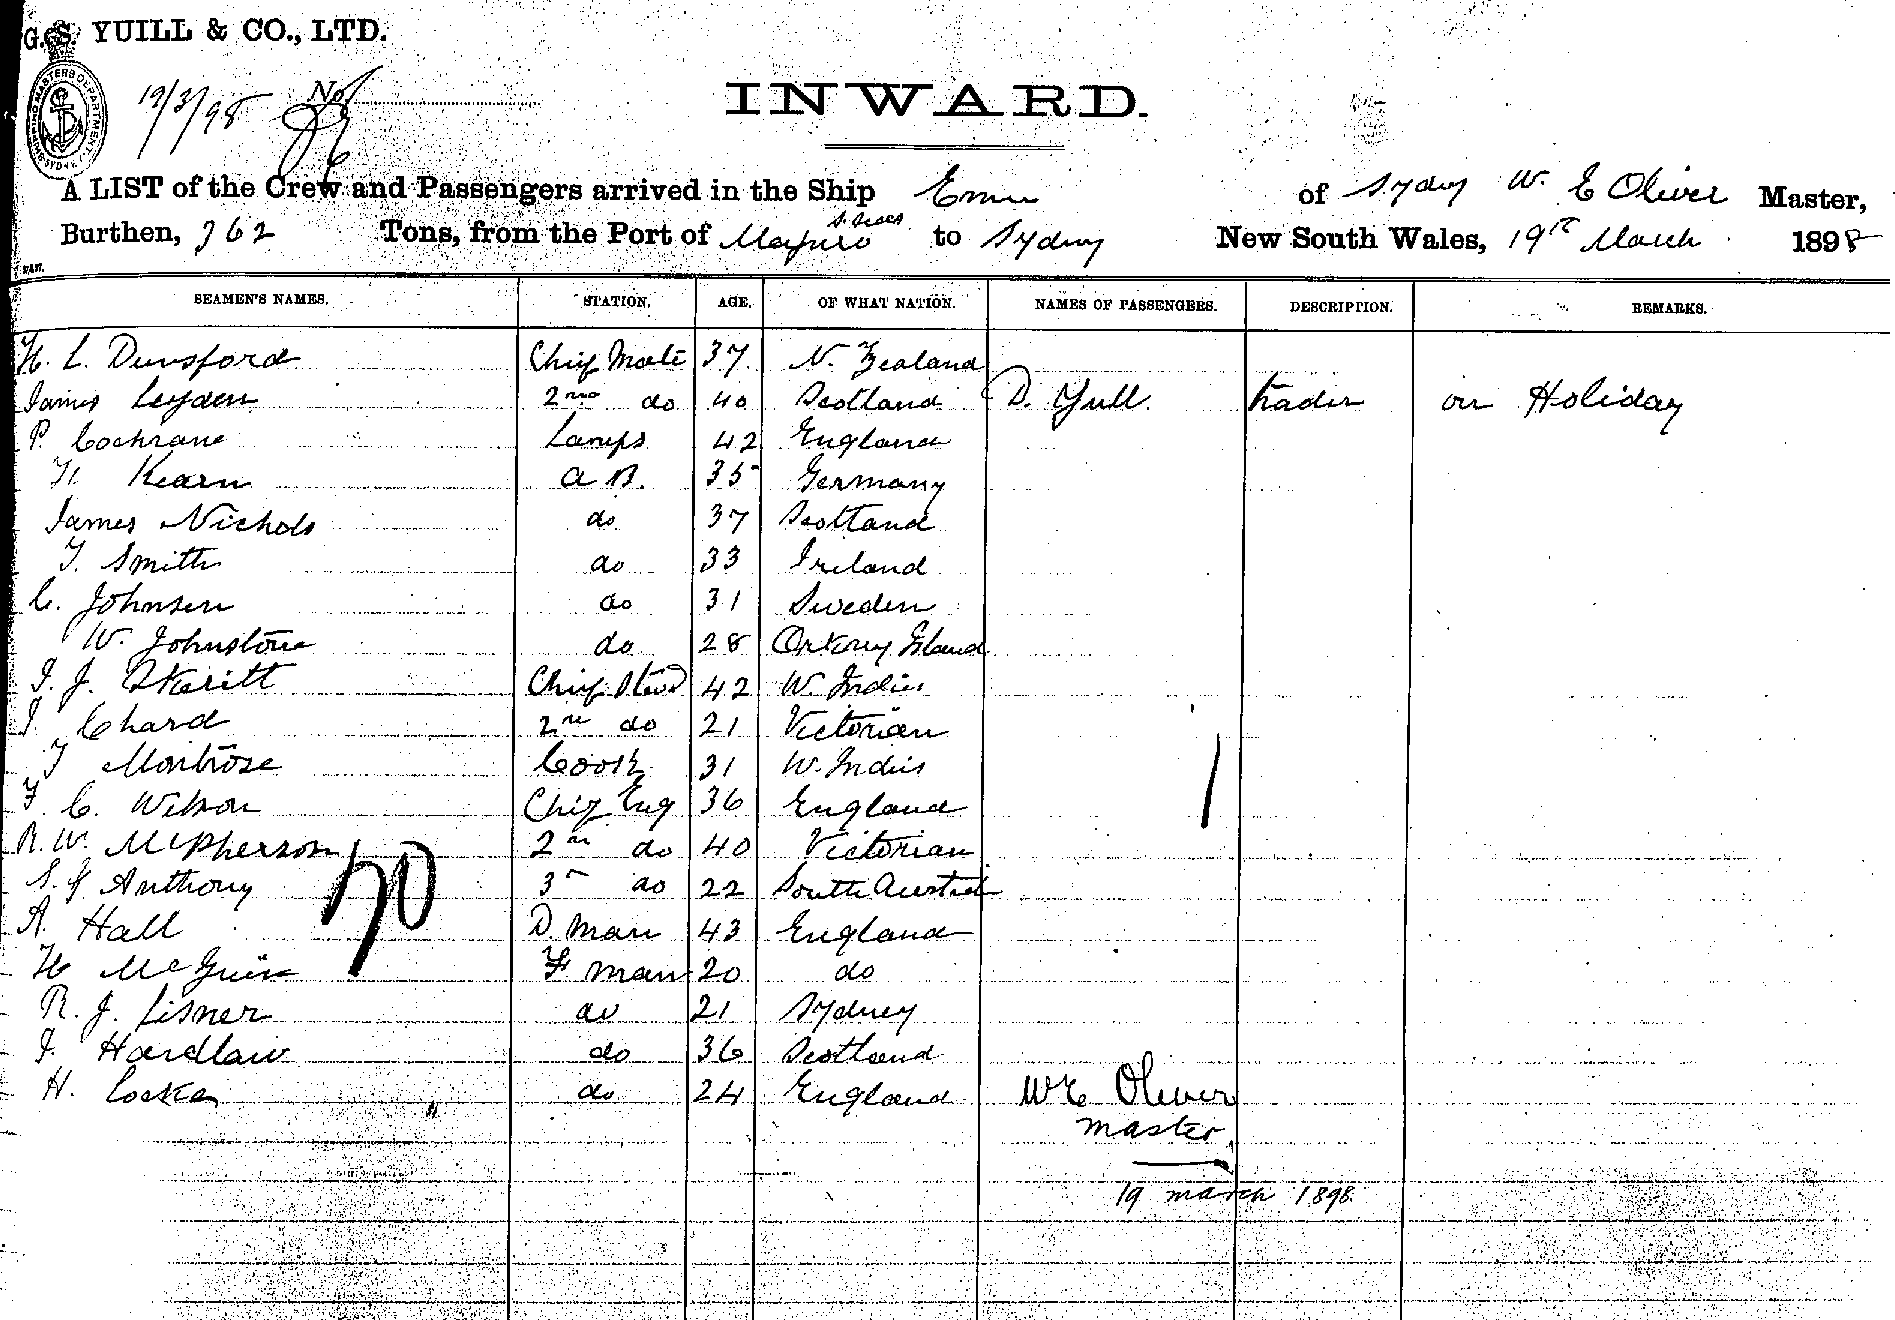 G. S. YUILL & CO., LTD.
19/3/98 No.
INWARD.
A LIST of the Crew and Passengers arrived in the Ship Emu of Sydney W. E Oliver Master,
S. Seas
Burthen, 362 Tons, from the Port of to Sydney New South Wales, 19th March 1898
SEAMEN'S NAMES. STATION. AGE. OF WHAT NATION. NAMES OF PASSENGERS. DESCRIPTION. REMARKS.
H. L. Dunsford Chief Mate 37 N. Zealand
James Leyden 2nd do 40 Scotland D. Yull. trader on Holiday
P. Cochrane Lamps 42 England
H. Kearn A B. 35 Germany
James Nichols do 37 Scotland
T. Smith do 33 Ireland
C. Johnsen do 31 Sweden
W. Johnstone do 28 Orkney Island
J. J. Skeritt Chief Stewd 42 W. Indies
J. Chard 2nd do 21 Victorian
J Montrose Cook 31 W. Indies
F. C. Wilson Chief Eng 36 England
R. W. McPherson 2nd do 40 Victorian
S. J Anthony 3r do 22 South Austral
A. Hall D. man 43 England
H McGuire F man 20 do
R. J. Lisner do 21 Sydney
J. Hardlaw do 36 Scotland
H. Locke do 24 England W E Oliver
master,
19 march 1898